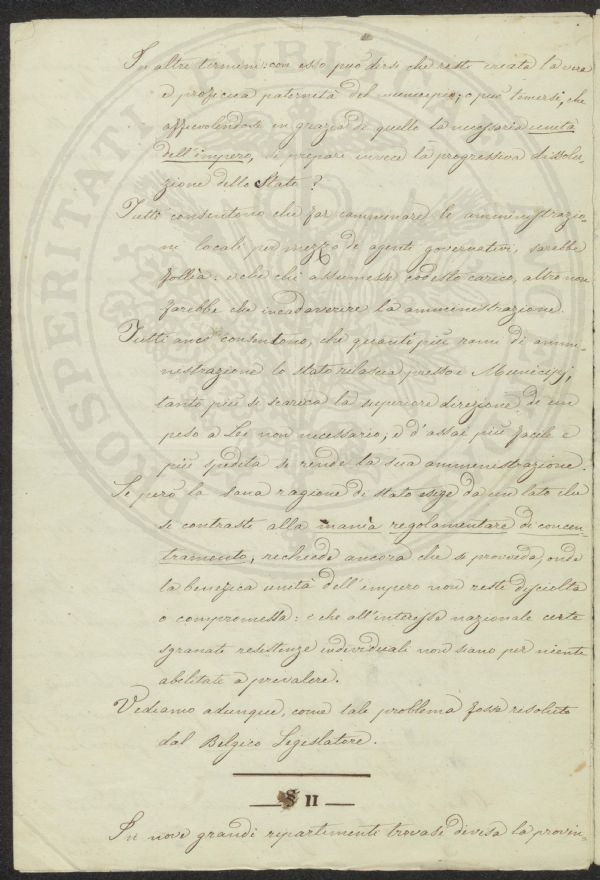 In altri termini: con esso può dirsi che resti creata la vera
e proficua paternità del municipio; o può temersi, che
affievolendosi in grazia di quello la necessaria unità
dell'impero, si prepari invece la progressiva dissolu-
zione dello Stato?
Tutti consentono che far camminare le amministrazio-
ni locali per mezzo di agenti governativi, sarebbe
follia: e che chi assumesse codesto carico, altro non
farebbe che incadaverire la amministrazione.
Tutti anco consentono, che quanti più rami di ammi-
nistrazione lo stato rilascia presso i Municipj,
tanto più si scarica la superiore direzione di un
peso a Lei non necessario, e d'assai più facile e
più spedita si rende la sua amministrazione.
Se però la sana ragione di stato esige da un lato che
si contrasti alla mania regolamentare di concen-
tramento, richiede ancora che si provveda, onde
la benefica unità dell'impero non resti disciolta
o compromessa: e che all'interesse nazionale certe
sgranate resistenze individuali non siano per niente
abilitate a prevalere.
Vediamo adunque, come tale problema fosse risoluto
dal Belgico Legislatore.
§ II
In nove grandi ripartimenti trovasi divisa la provin-
PROSPERITATI PUBLICAE